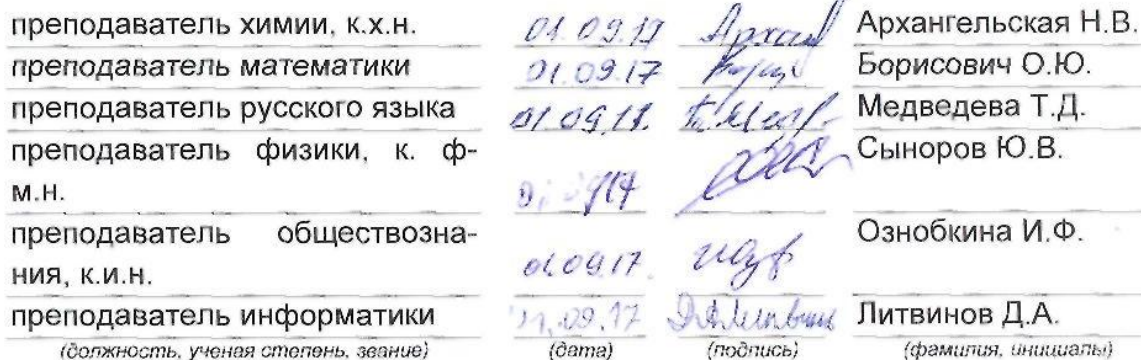 преподаватель химии, к.х.н. 01.09.17 Архангельская Н.В.
преподаватель математики 01.09.17 Борисович О.Ю.
преподаватель русского языка 01.09.17. Т.Медв- Медведева Т.Д.
преподаватель физики, к. ф- Сыноров Ю.В.
м.н.
преподаватель обществозна- Ознобкина И.Ф.
ния, к.и.н. 01.09.17.
преподаватель информатики .09.17 Д.А.Литвинов Литвинов Д.А.
(должность, ученая степень, звание) (дата) (подпись) (фамилия, инициалы)